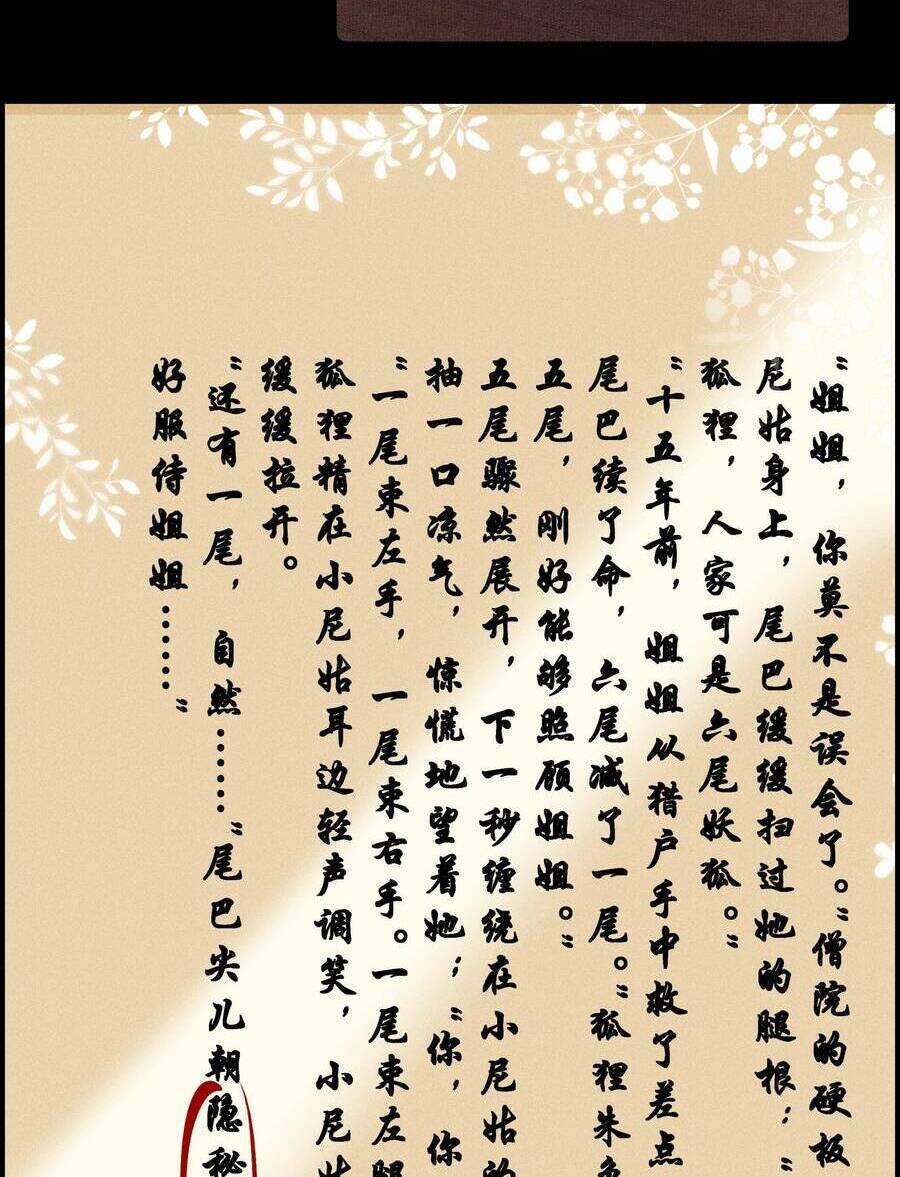 “姐姐，你莫不是误会了。”僧院的硬板
尼姑身上，尾巴缓缓扫过她的腿根：“
狐狸，人家可是六尾妖狐。”
“十五年前，姐姐从猎户手中救了差点
尾巴续了命，六尾减了一尾。”狐狸朱
五尾，刚好能够照顾姐姐。”
五尾骤然展开，下一秒缠绕在小尼姑的
抽一口凉气，惊慌地望着她：“你，你
“一尾束左手，一尾束右手。一尾束左腿
狐狸精在小尼姑耳边轻声调笑，小尼姑
缓缓拉开。
“还有一尾，自然……”尾巴尖儿朝隐秘
好服侍姐姐……”